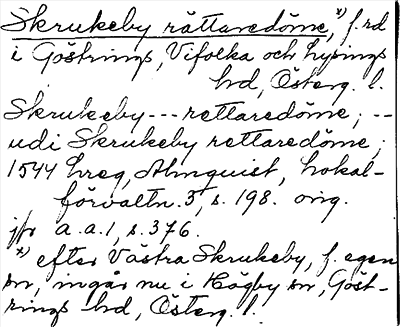 Skrukeby rättaredöme,ˣ⁾ f. rd
i Göstrings, Vifolka och Lysings
hd, Österg. l.
Skrukeby --- rettaredöme; --
udi Skrukeby rettaredöme;
1544 hreg, Almquist, Lokal-
förvaltn. 3, s. 198. orig.
jfr a.a. 1, s. 376.
ˣ⁾ efter Västra Skrukeby, f. egen
sn, ingår nu i Högby sn, Göst-
rings hd, Österg. l.